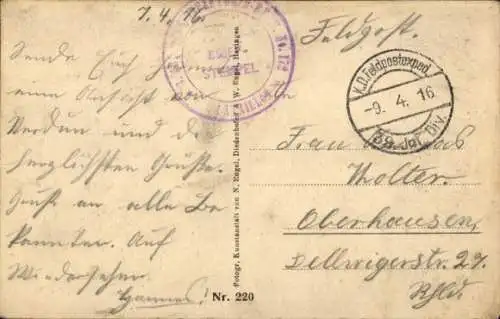 7.4.16.
Sende Euch
eine Ansicht von
Verdun und die
herzlichsten Grüße.
Gruß an alle Be
kannten. Auf
Wiedersehen
Hannes!
BRIEF
STEMPEL
Photogr. Kunstanstalt von N. Engel, Diedenhofen & W. Engel, Hayingen
Nr. 220
Feldpost.
K.D.Feldpostexped.
-9. 4. 16
39. Inf. Div.
Frau
Wolter.
Oberhausen,
Dellwigerstr. 27.
Rhld.